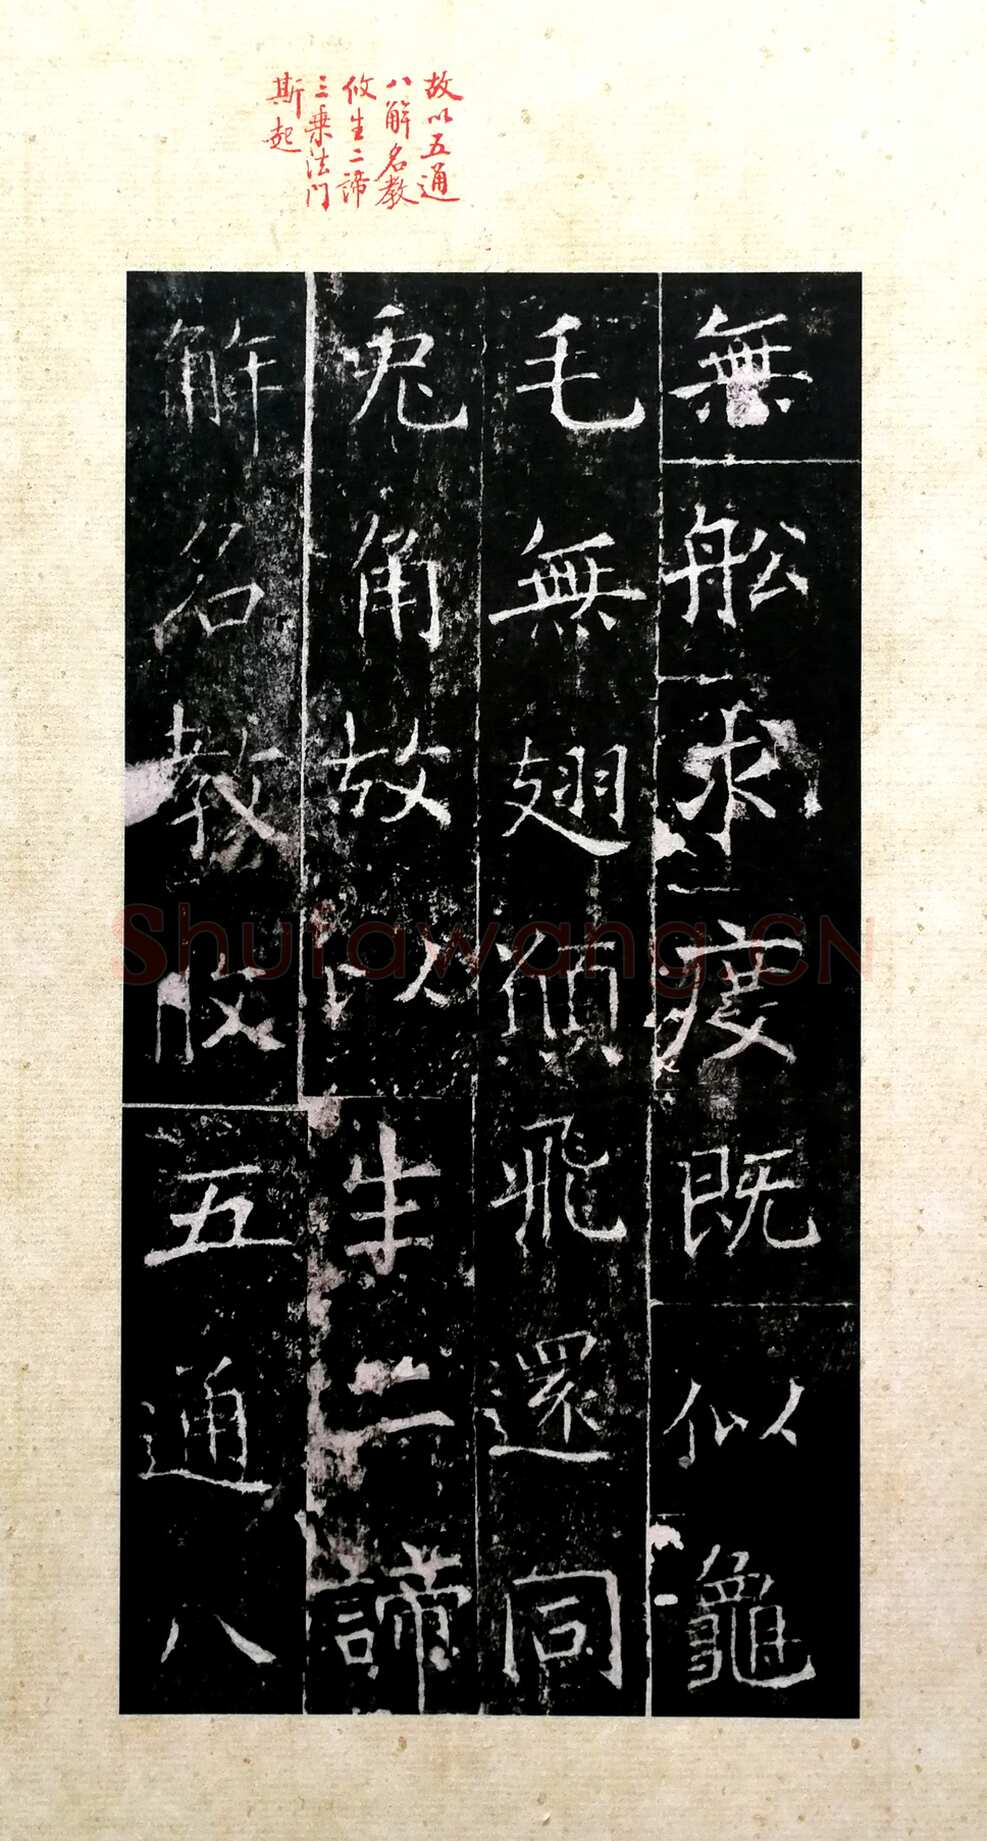 故以五通
八解名教
攸生二諦
三乗法門
斯起
無舩求度既似龜
毛無翅飛還同
兎角故以生二諦
解名教攸五通八
Shufawang.CN